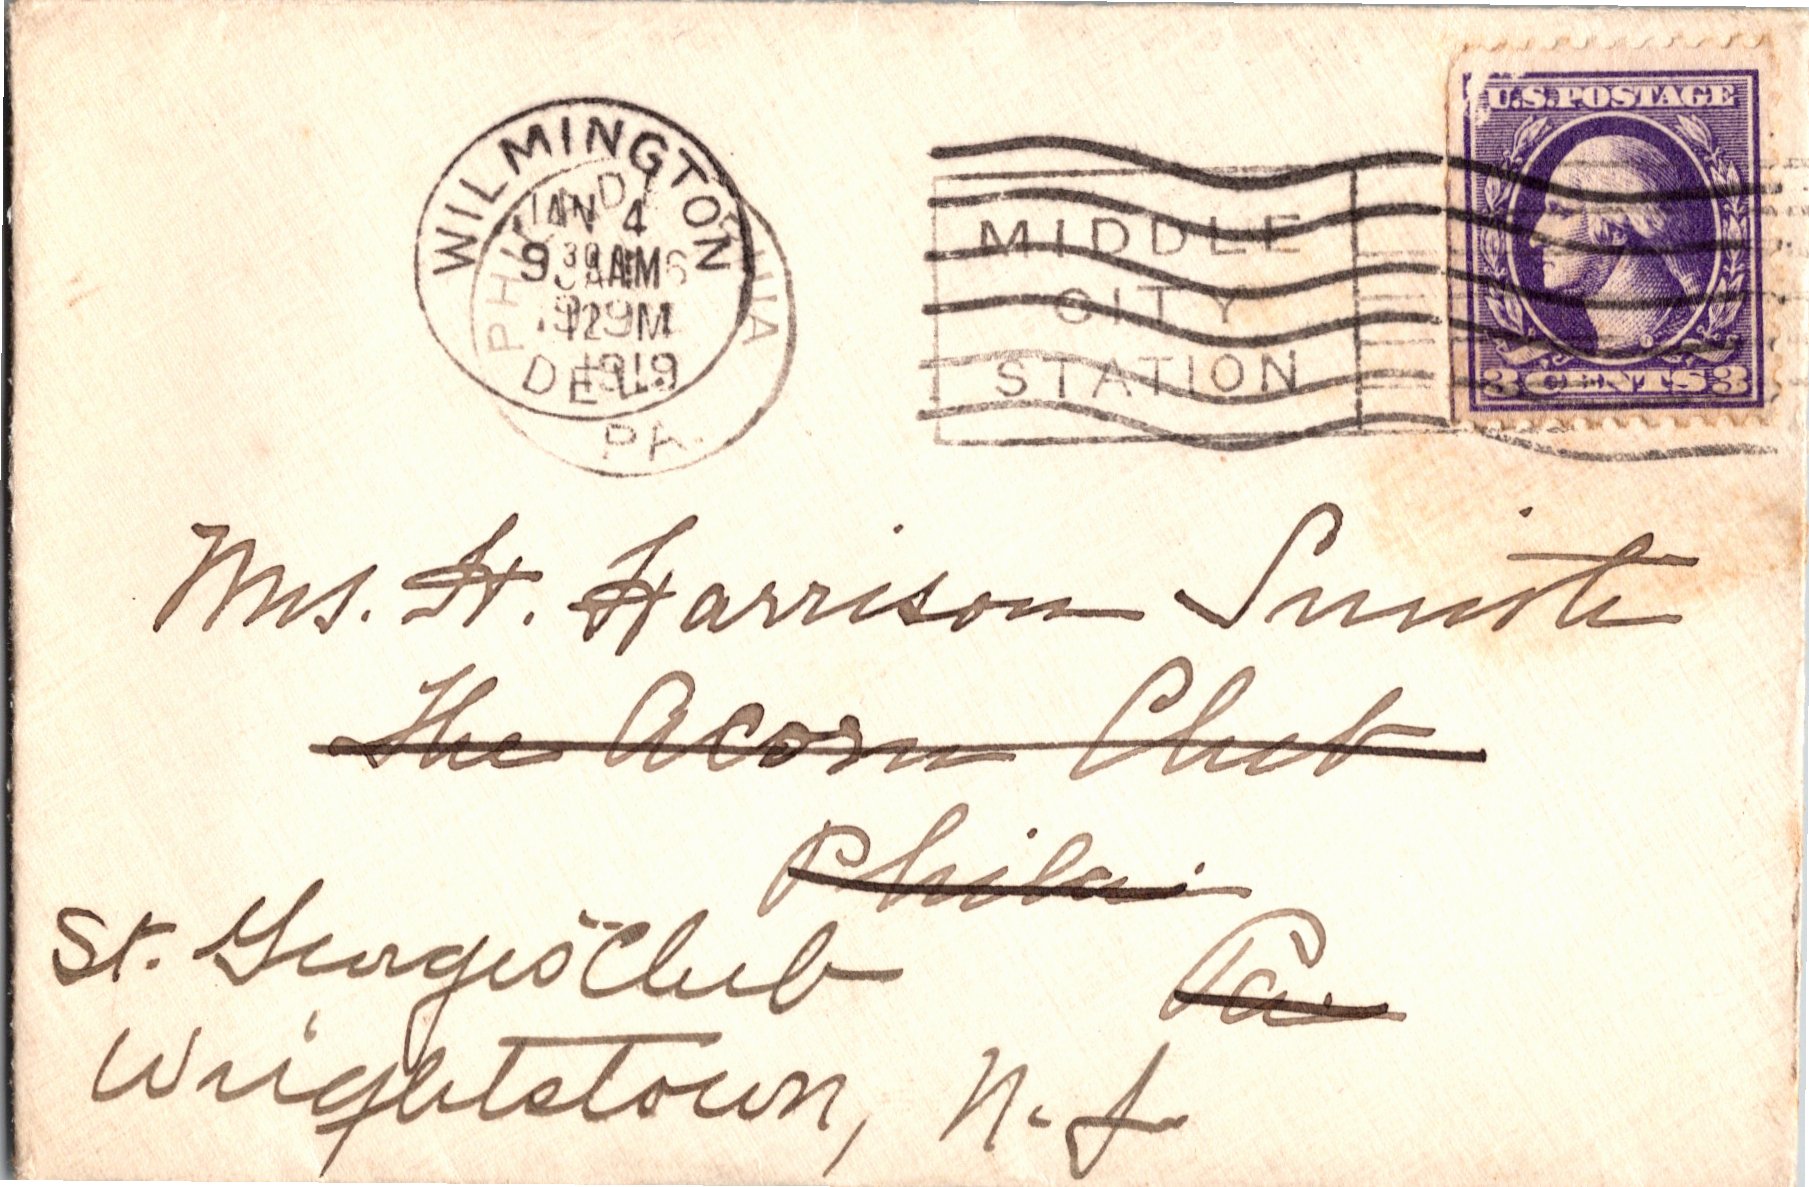 WILMINGTON
JAN 4
9 30 AM
1919
DEL.
PHILADELPHIA
JAN 6
12 M
1919
PA.
MIDDLE
CITY
STATION
U.S. POSTAGE
3 CENTS 3
Mrs. H. Harrison Smith
The Acorn Club
Phila.
Pa.
St. Georges Club
Wrightstown, N. J.